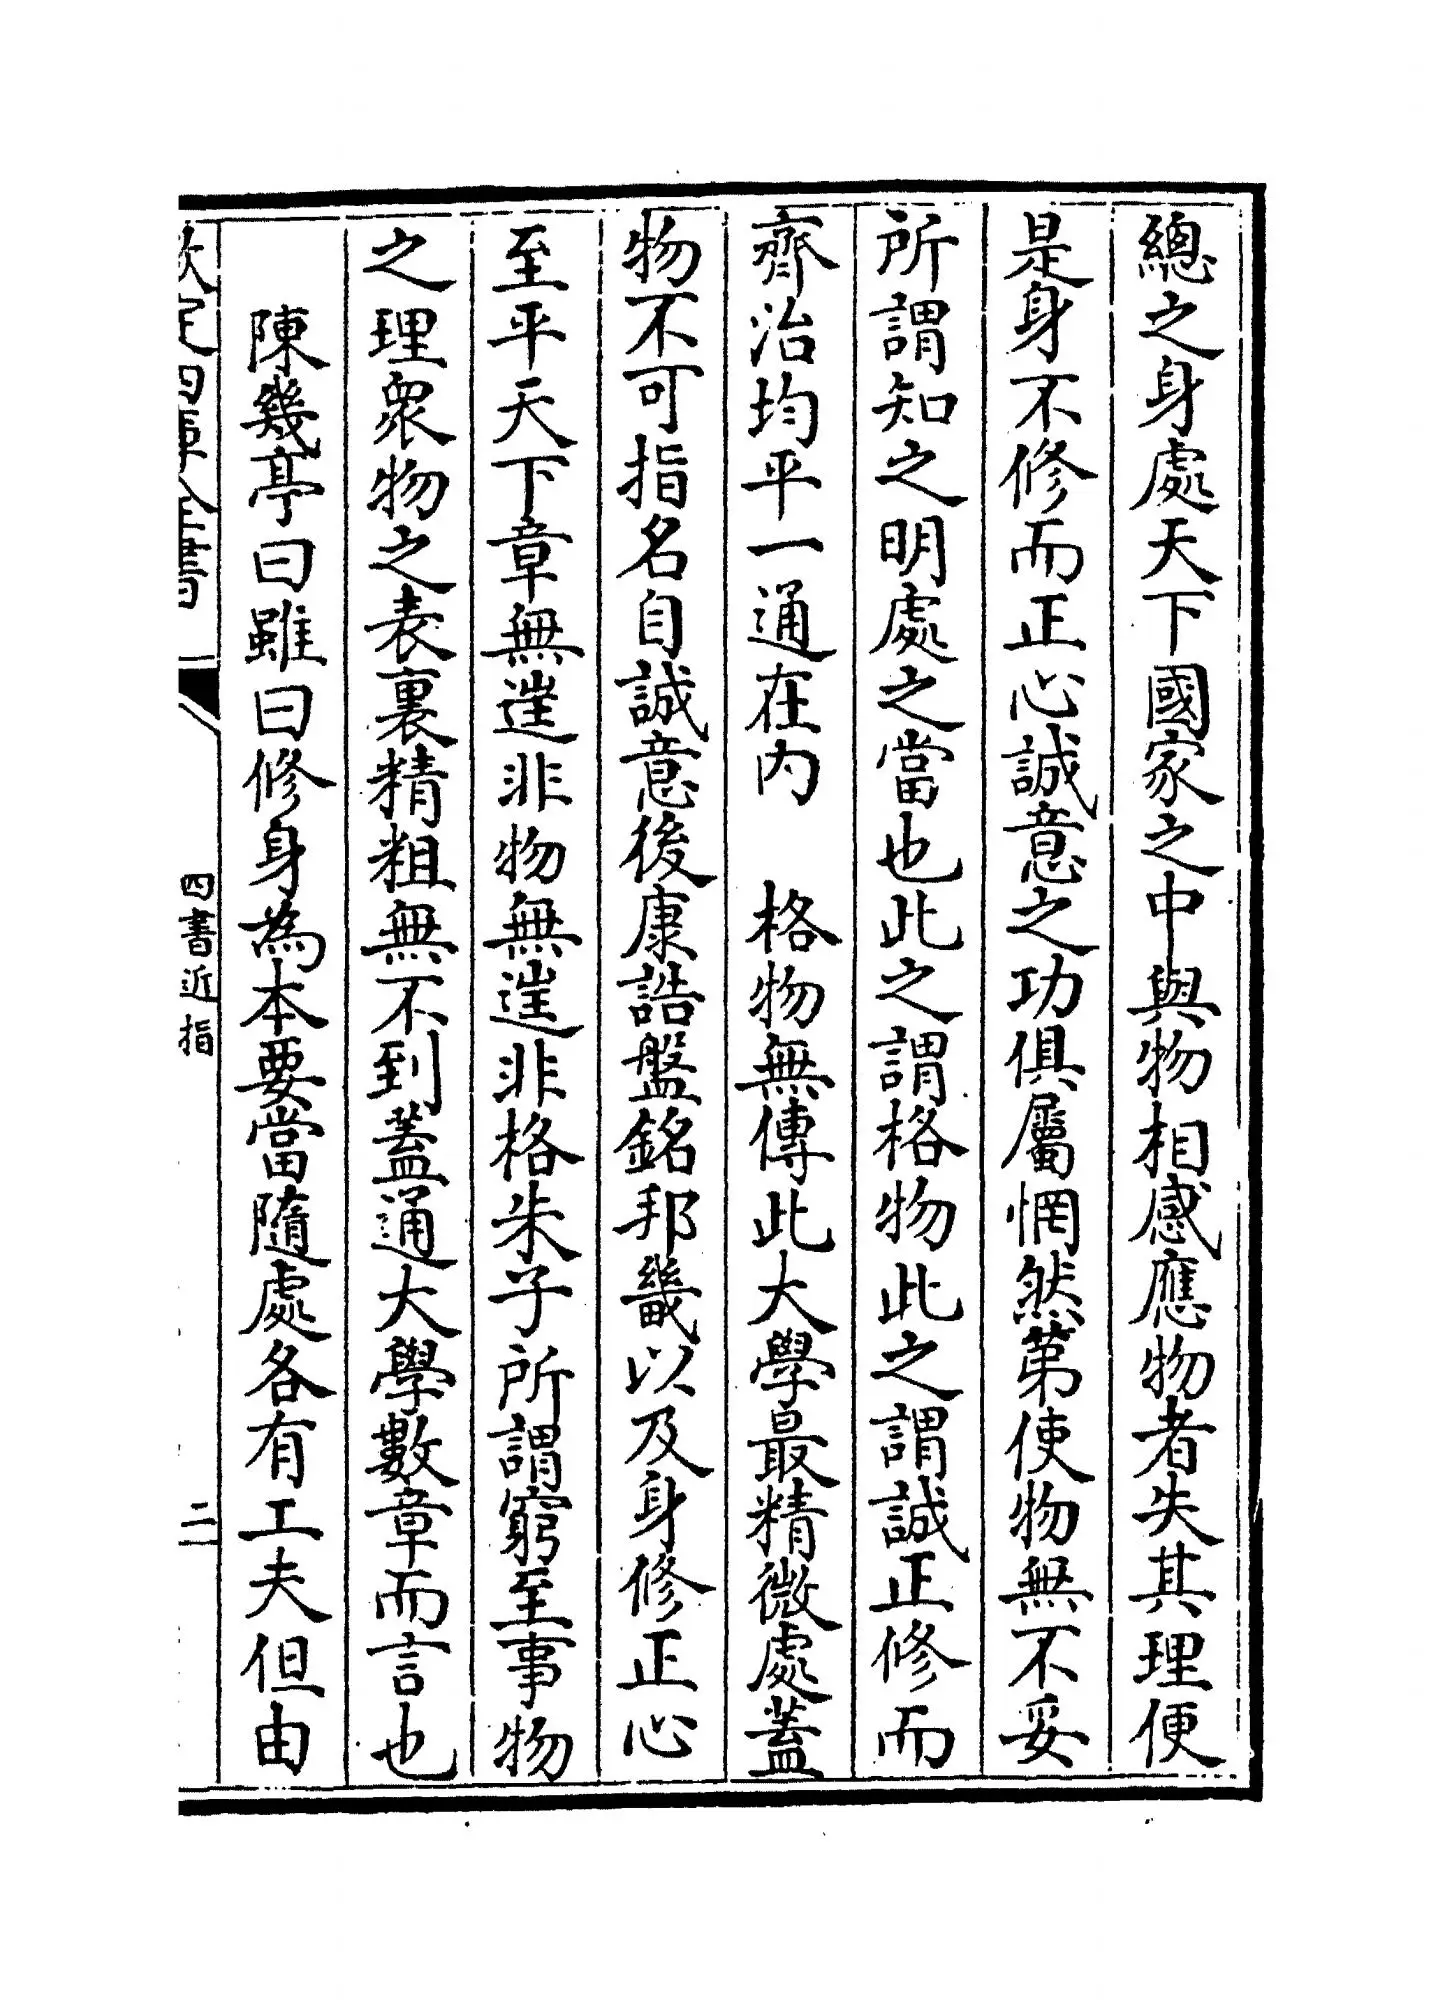 總之身處天下國家之中與物相感應物者失其理便
是身不修而正心誠意之功俱屬惘然第使物無不妥
所謂知之明處之當也此之謂格物此之謂誠正修而
齊治均平一通在內　格物無傳此大學最精微處蓋
物不可指名自誠意後康誥盤銘邦畿以及身修正心
至平天下章無遑非物無遑非格朱子所謂窮至事物
之理衆物之表裏精粗無不到蓋通大學數章而言也
陳幾亭曰雖曰修身為本要當隨處各有工夫但由
欽定四庫全書
四書近指
二